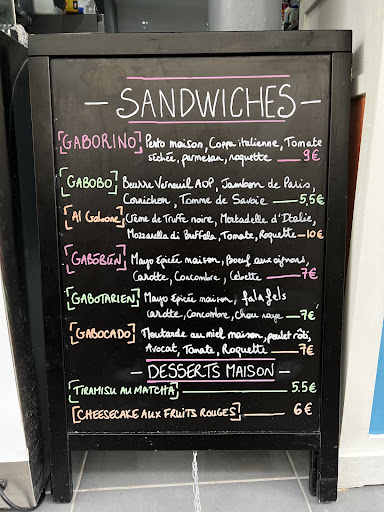 — SANDWICHES —
[GABORINO] Pesto maison, Coppa italienne, Tomate
séchée, parmesan, roquette — 9€
[GABOBO] Beurre Verneuil AOP, Jambon de Paris,
Cornichon, Tomme de Savoie — 5,5€
[Al Gabone] Crème de Truffe noire, Mortadelle d'Italie,
Mozzarella di Buffala, Tomate, Roquette — 10€
[GABÓBÚN] Mayo épicée maison, boeuf aux oignons,
Carotte, Concombre, Cebette — 7€
[GABOTARIEN] Mayo épicée maison, falafels
Carotte, Concombre, Chou rouge — 7€
[GABOCADO] Moutarde au miel maison, poulet rôti,
Avocat, Tomate, Roquette — 7€
— DESSERTS MAISON —
[TIRAMISU AU MATCHA] — 5.5€
[CHEESECAKE AUX FRUITS ROUGES] — 6€